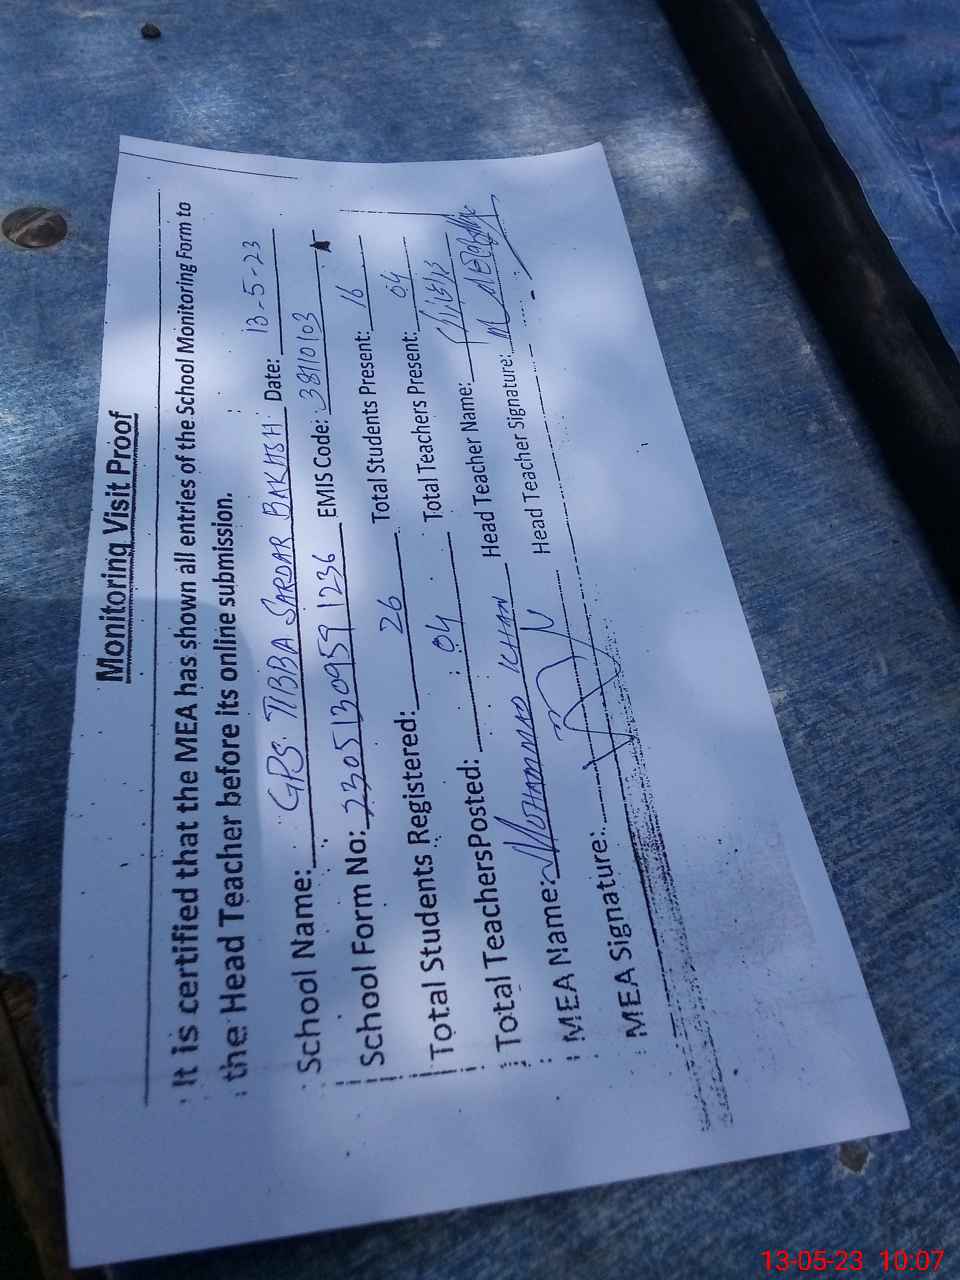 Monitoring Visit Proof
It is certified that the MEA has shown all entries of the School Monitoring Form to
the Head Teacher before its online submission.
School Name: GPS. TIBBA SARDAR BAKHSH Date: 13-5-23
School Form No: 23051309591236 EMIS Code: 38110103
Total Students Registered: 26 Total Students Present: 16
Total TeachersPosted: 04 Total Teachers Present: 04
MEA Name: MOHAMMAD KHAN Head Teacher Name:
MEA Signature: Head Teacher Signature:
13-05-23 10:07